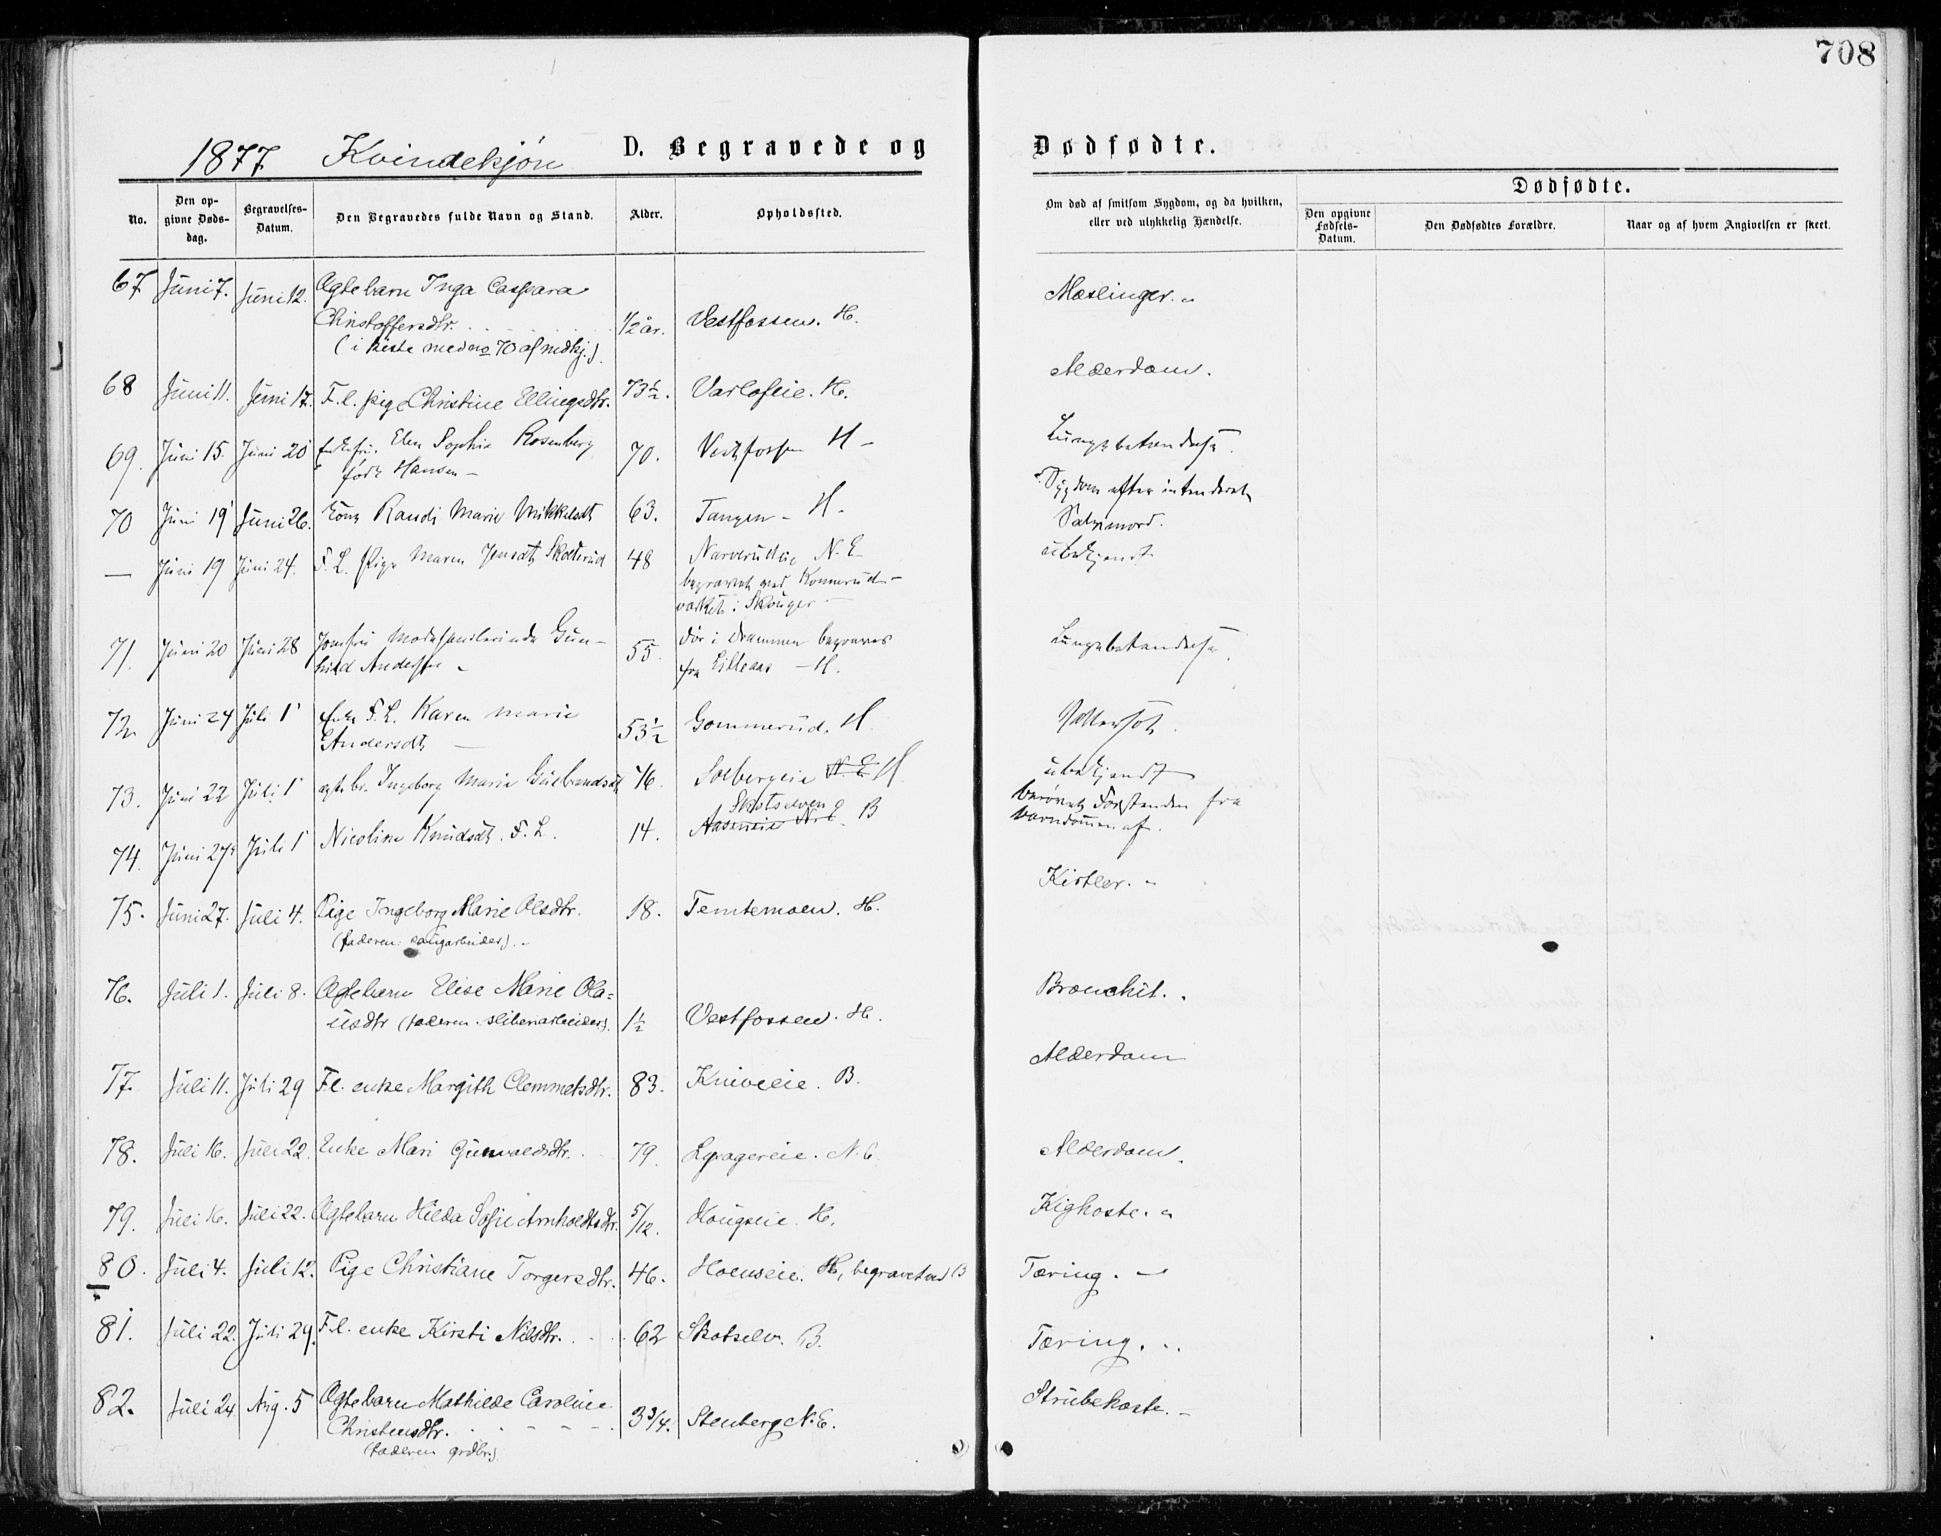 708
1877 Kvindekjøn D. Begravede og Dødfødte.
No. Den opgivne Dødsdag. Begravelses-Datum. Den Begravedes fulde Navn og Stand. Alder. Opholdssted. Om død af smitsom Sygdom, og da hvilken, eller ved ulykkelig Hændelse. Dødfødte. Den opgivne Fødsels-Datum. Den Dødfødtes Forældre. Naar og af hvem Angivelsen er skeet.
67 Juni 7. Juni 12. Ægtebarn Inga Caspara
Christoffersdtr. 1/2 år. Vestfossen. H. Mæslinger. "
(i kiste med no 70 af mdkj.)
68 Juni 11. Juni 17. F.l. pige Christine Ellingsdtr. 73½. Varlofeie. H. Alderdom.
69. Juni 15. Juni 20 Enkefru. Elen Sophie Rosenberg 70. Vestfossen H - Lungebetændelse.
født Hansen -
70 Juni 19 Juni 26. Kone Randi Marie Mikkelsdt 63. Tangen - H. Sygdom efter intenderet
Selvmord.
— Juni 19 Juni 24. F. L. Pige Maren Jensdt Skotterud 48 Narverudeie N. E. ubekjendt
begravet ved Konnerud-
værket i Skouger
71. Juni 20 Juni 28 Jomfru Modehandlerinde Gun-
hild Andersen 55 Dør i Drammen begraves
fra Lilleaas - H. Lungebetændelse.
72. Juni 24 Juli 1 Enke F. L. Karen Marie
Andersdt 53½ Gommerud. H.
73. Juni 22 Juli 1 ægtebr. Ingeborg Marie Gulbrandsdt 76. Solbergeie N. E H ubekjendt
74. Juni 27 Juli 1 Nicoline Knudsdt. F. L. 14. Skotselven B berøvet Forstanden fra
barndommen af.
75. Juni 27. Juli 4. Pige Ingeborg Marie Olsdtr. 18. Temtemoen. H. Kirtler. "
(faderen: saugarbeider). -
76. Juli 1. Juli 8. Ægtebarn Elise Marie Ola=
usdtr (faderen. sliberiarbeider). 1½ Vestfossen. H. Bronchit. .
77. Juli 11. Juli 29 F.l. enke Margith Clemmetsdtr. 83. Kniveeie. B. Alderdom
78. Juli 16. Juli 22. Enke Mari Gunvaldsdtr. 79. Lyragereie. N. E. Alderdom.
79. Juli 16. Juli 22. Ægtebarn Hilda Sofie Arnholdtsdtr. 5/12. Hougseie. H. Kighoste. "
80. Juli 4. Juli 12. Pige Christiane Torgersdtr. 46. Hoenseie. H, begravet ved B Tæring. —
81. Juli 22. Juli 29. F.l. enke Kirsti Nilsdtr. 62 Skotselv. B. Tæring. . .
82. Juli 24 Aug. 5 Ægtebarn Mathilde Caroline
Christensdtr. 3¾. Stenberg N. E. Strubehoste. -
(faderen grdbr.)